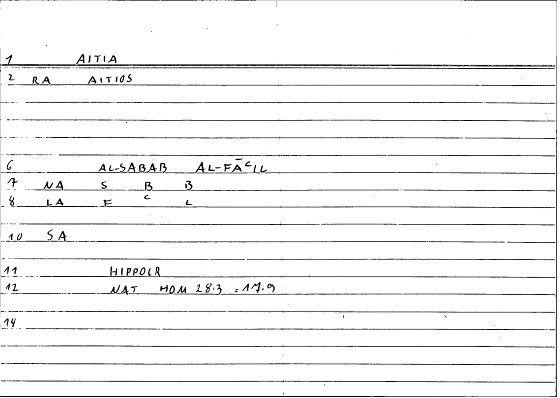 1 AITIA
2 RA AITIOS
6 AL-SABAB AL-FĀʿIL
7 NA S B B
8 LA F ʿ L
10 SA
11 HIPPOCR
12 NAT HOM 28.3 = 17.9
14